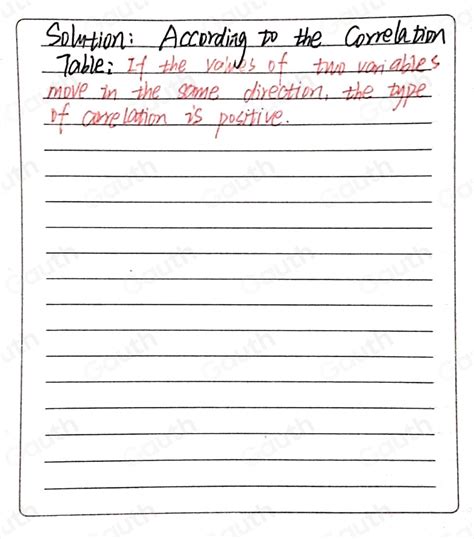 Solution: According to the Correlation
Table: If the values of two variables
move in the same direction, the type
of correlation is positive.